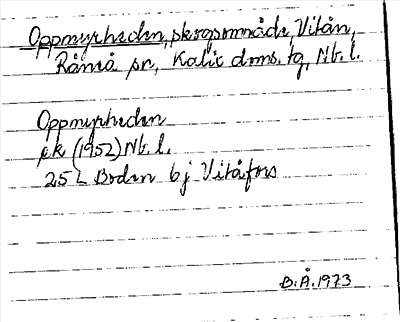 Oppmyrheden, skogsområde, Vitån,
Råneå sn, Kalix doms. tg, Nb. l.
Oppmyrheden
ek (1952) Nb. l.
25 L Boden 6 j Vitåfors
B.Å. 1973